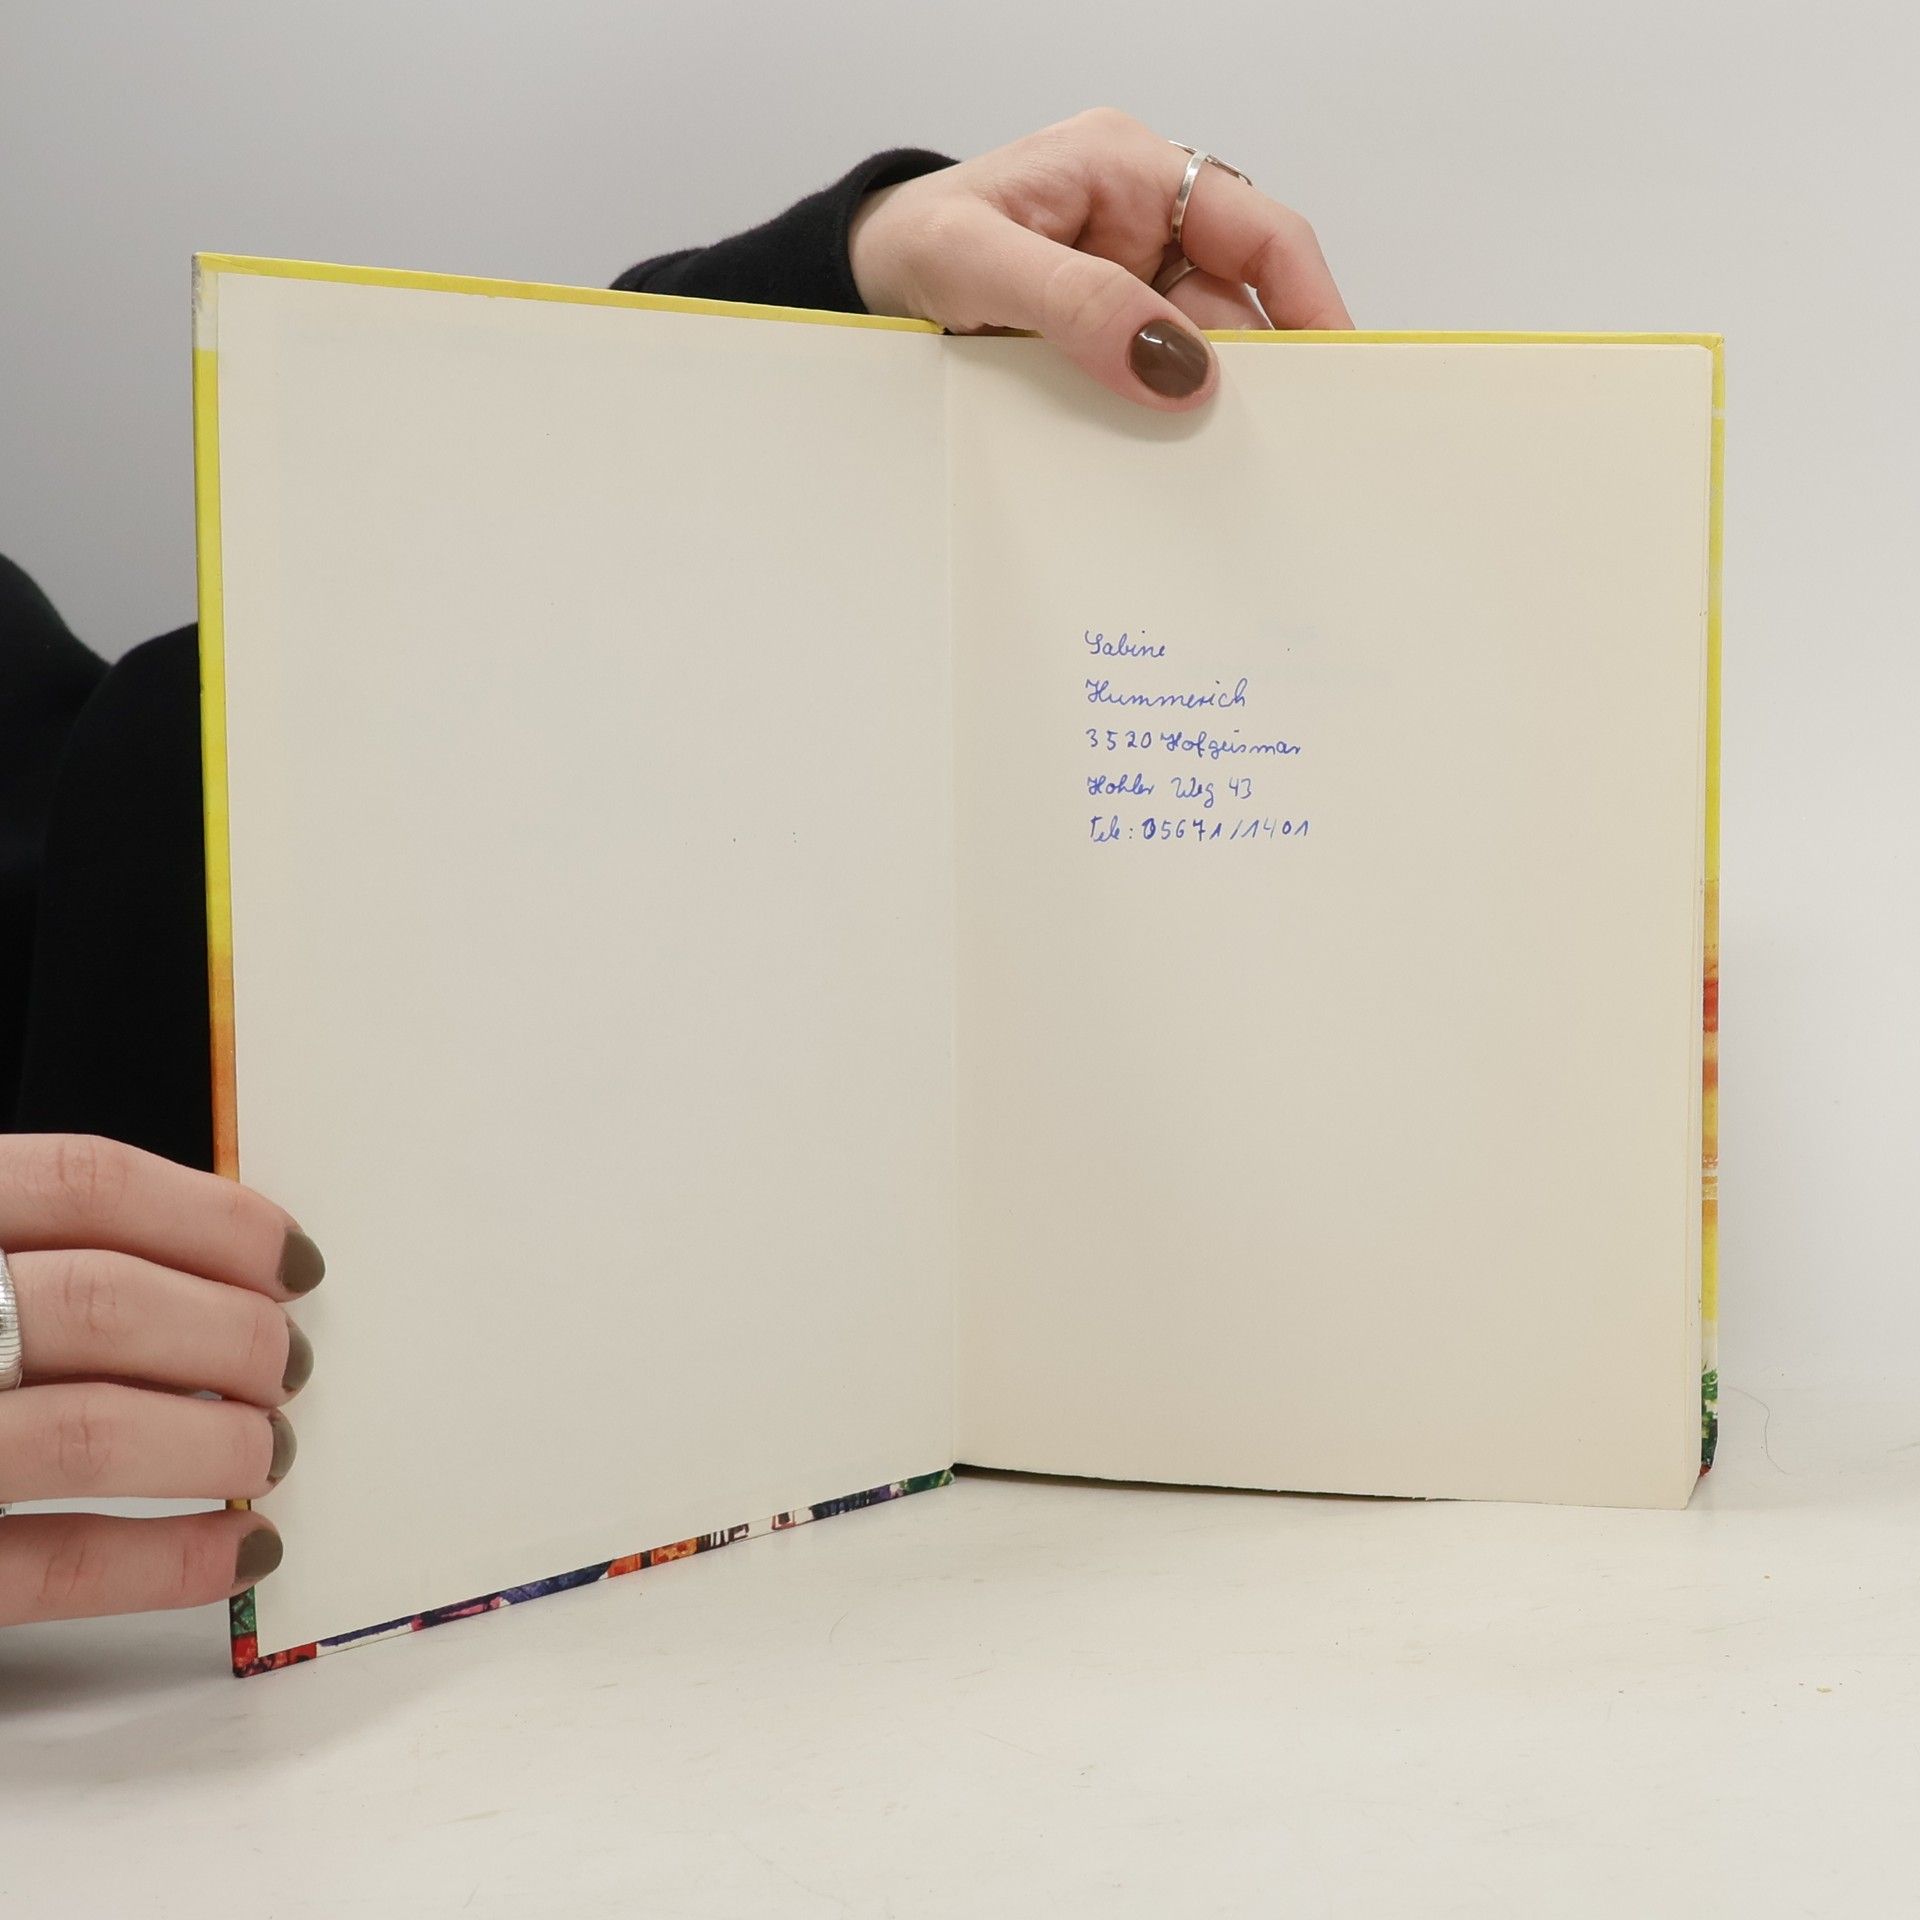 Sabine
Hummerich
3520 Hofgeismar
Hohler Weg 43
Tele: 05671/1401